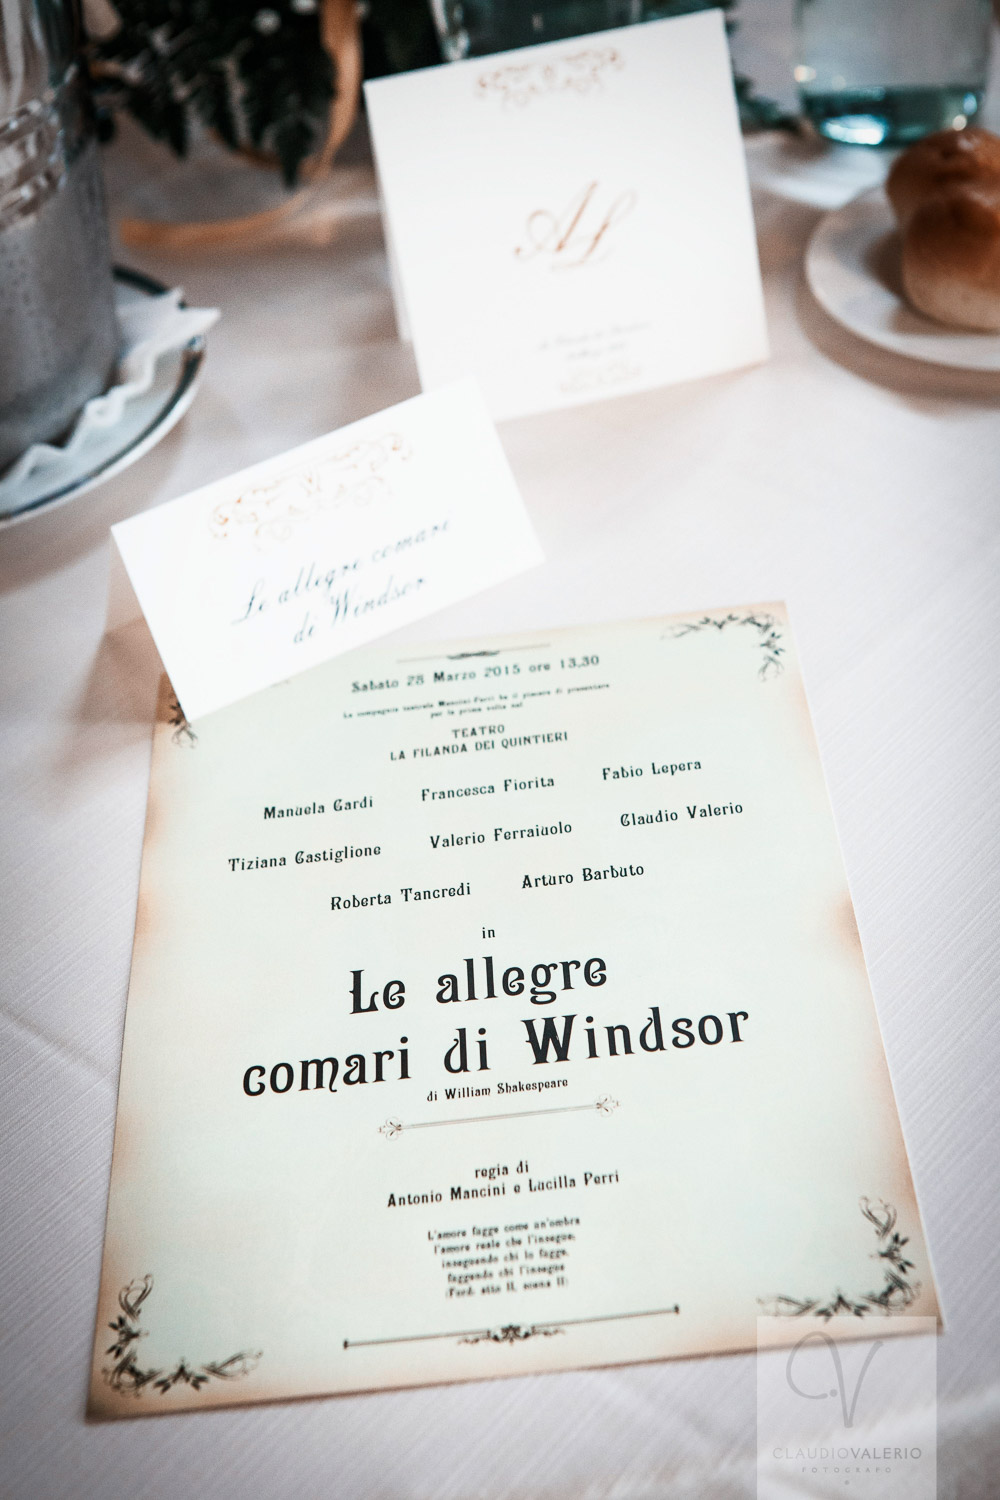 AL
Le allegre comari
di Windsor
Sabato 28 Marzo 2015 ore 13,30
La compagnia teatrale Mancini-Perri ha il piacere di presentare
per la prima volta nel
TEATRO
LA FILANDA DEI QUINTIERI
Manuela Gardi Francesca Fiorita Fabio Lepera
Tiziana Castiglione Valerio Ferraiuolo Claudio Valerio
Roberta Tancredi Arturo Barbuto
in
Le allegre
comari di Windsor
di William Shakespeare
regia di
Antonio Mancini e Lucilla Perri
L'amore fugge come un'ombra
l'amore reale che l'insegue,
inseguendo chi lo fugge,
fuggendo chi l'insegue
(Ford, atto II, scena II)
C.V
CLAUDIOVALERIO
FOTOGRAFO